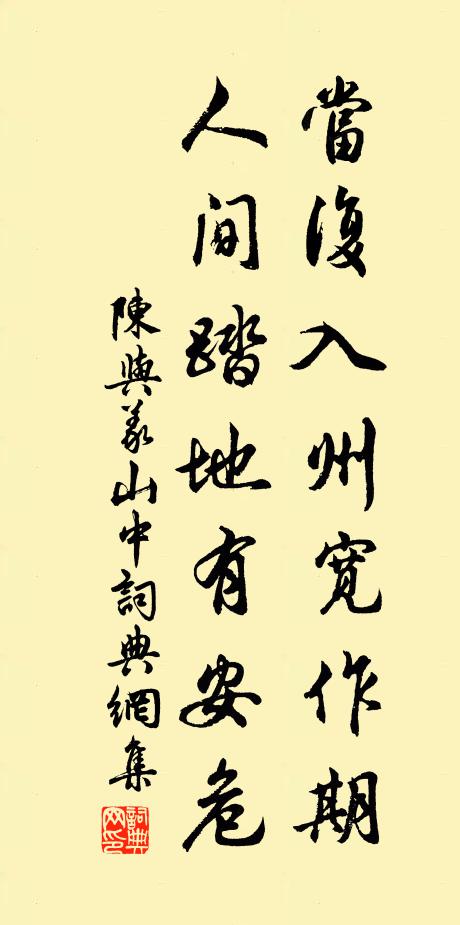 當復入州寬作期
人间踏地有安危
陳與義山中詞典網集
詞典
网印